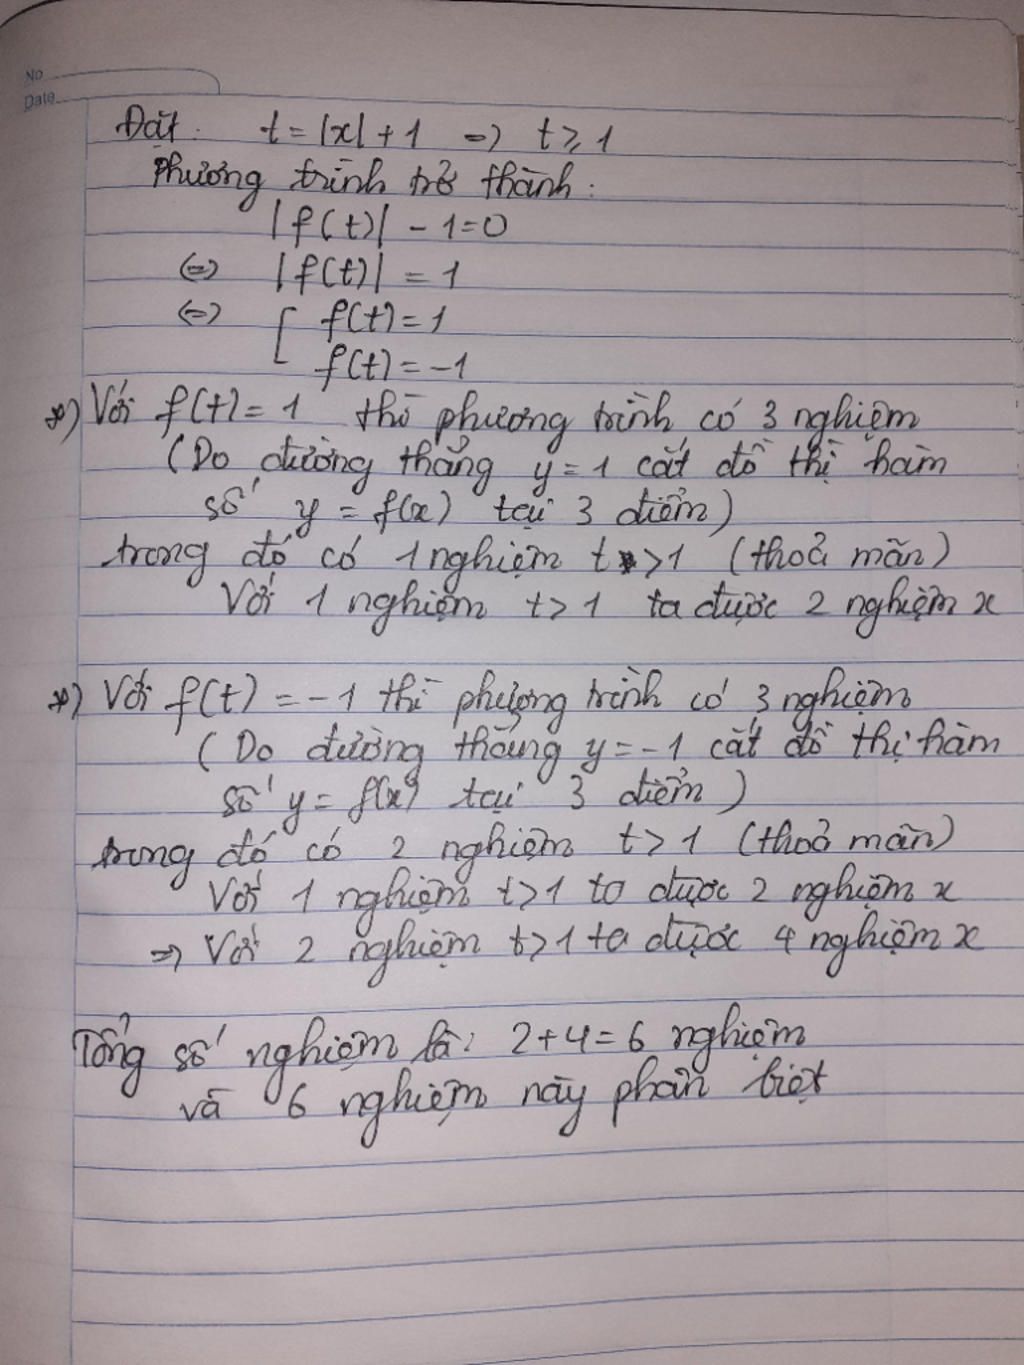 No
Date
Đặt: t = |x| + 1 => t ≥ 1
Phương trình trở thành:
|f(t)| - 1 = 0
<=> |f(t)| = 1
<=> [ f(t) = 1
f(t) = -1
*) Với f(t) = 1 thì phương trình có 3 nghiệm
(Do đường thẳng y = 1 cắt đồ thị hàm
số y = f(x) tại 3 điểm)
trong đó có 1 nghiệm t > 1 (thoả mãn)
Với 1 nghiệm t > 1 ta được 2 nghiệm x
*) Với f(t) = -1 thì phương trình có 3 nghiệm
(Do đường thẳng y = -1 cắt đồ thị hàm
số y = f(x) tại 3 điểm)
trong đó có 2 nghiệm t > 1 (thoả mãn)
Với 1 nghiệm t > 1 ta được 2 nghiệm x
=> Với 2 nghiệm t > 1 ta được 4 nghiệm x
Tổng số nghiệm là: 2 + 4 = 6 nghiệm
và 6 nghiệm này phân biệt